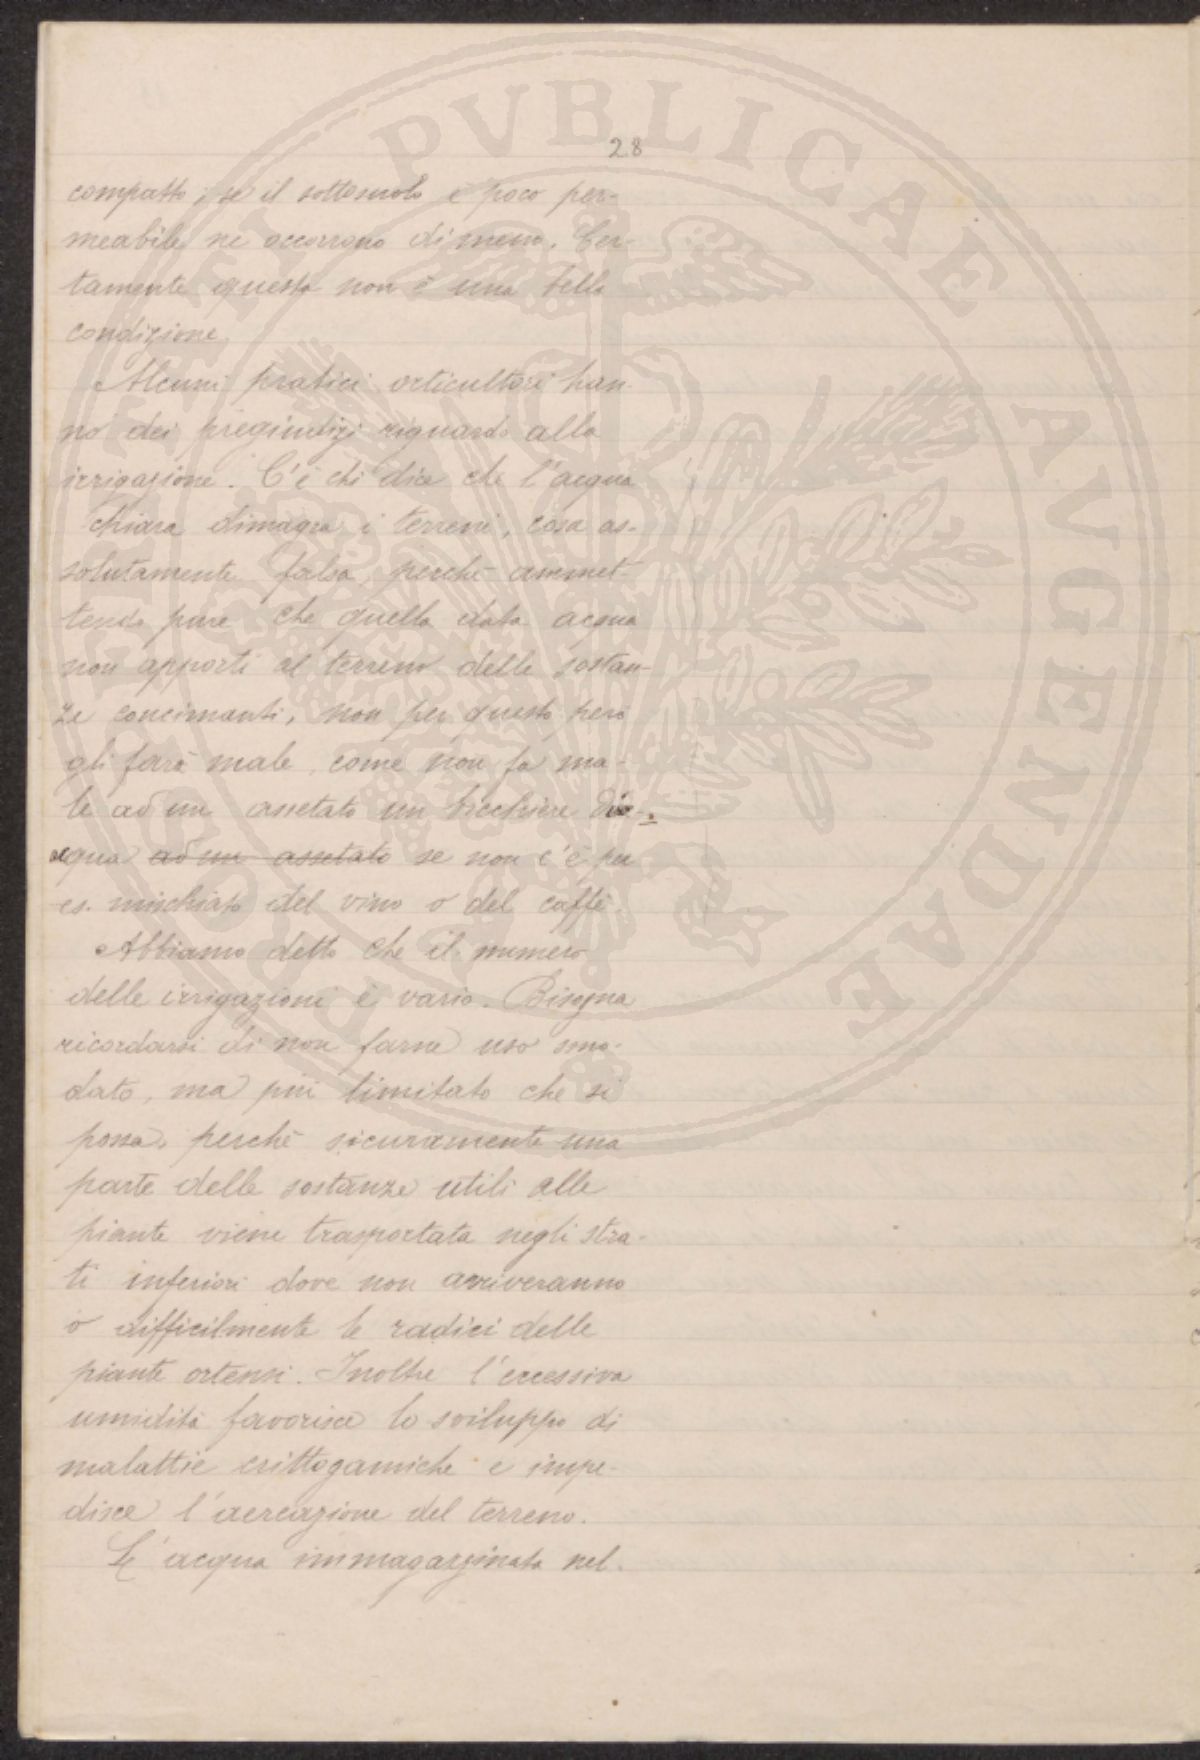 28
compatto; se il sottosuolo è poco per-
meabile ne occorrono di meno. Cer-
tamente questa non è una bella
condizione.
Alcuni pratici orticultori han-
no dei pregiudizi riguardo alla
irrigazione. C'è chi dice che l'acqua
chiara dimagra i terreni, cosa as-
solutamente falsa, perchè ammet-
tendo pure che quella data acqua
non apporti al terreno delle sostan-
ze concimanti, non per questo però
gli farà male, come non fa ma-
le ad un assetato un bicchiere di
acqua ad un assetato se non c'è per
es. mischiato del vino o del caffè.
Abbiamo detto che il numero
delle irrigazioni è vario. Bisogna
ricordarsi di non farne uso smo-
dato, ma più limitato che si
possa, perchè sicuramente una
parte delle sostanze utili alle
piante viene trasportata negli stra-
ti inferiori dove non arriveranno
o difficilmente le radici delle
piante ortensi. Inoltre l'eccessiva
umidità favorisce lo sviluppo di
malattie crittogamiche e impe-
disce l'aereazione del terreno.
L'acqua immagazzinata nel
PVBLICAE AVGENDAE